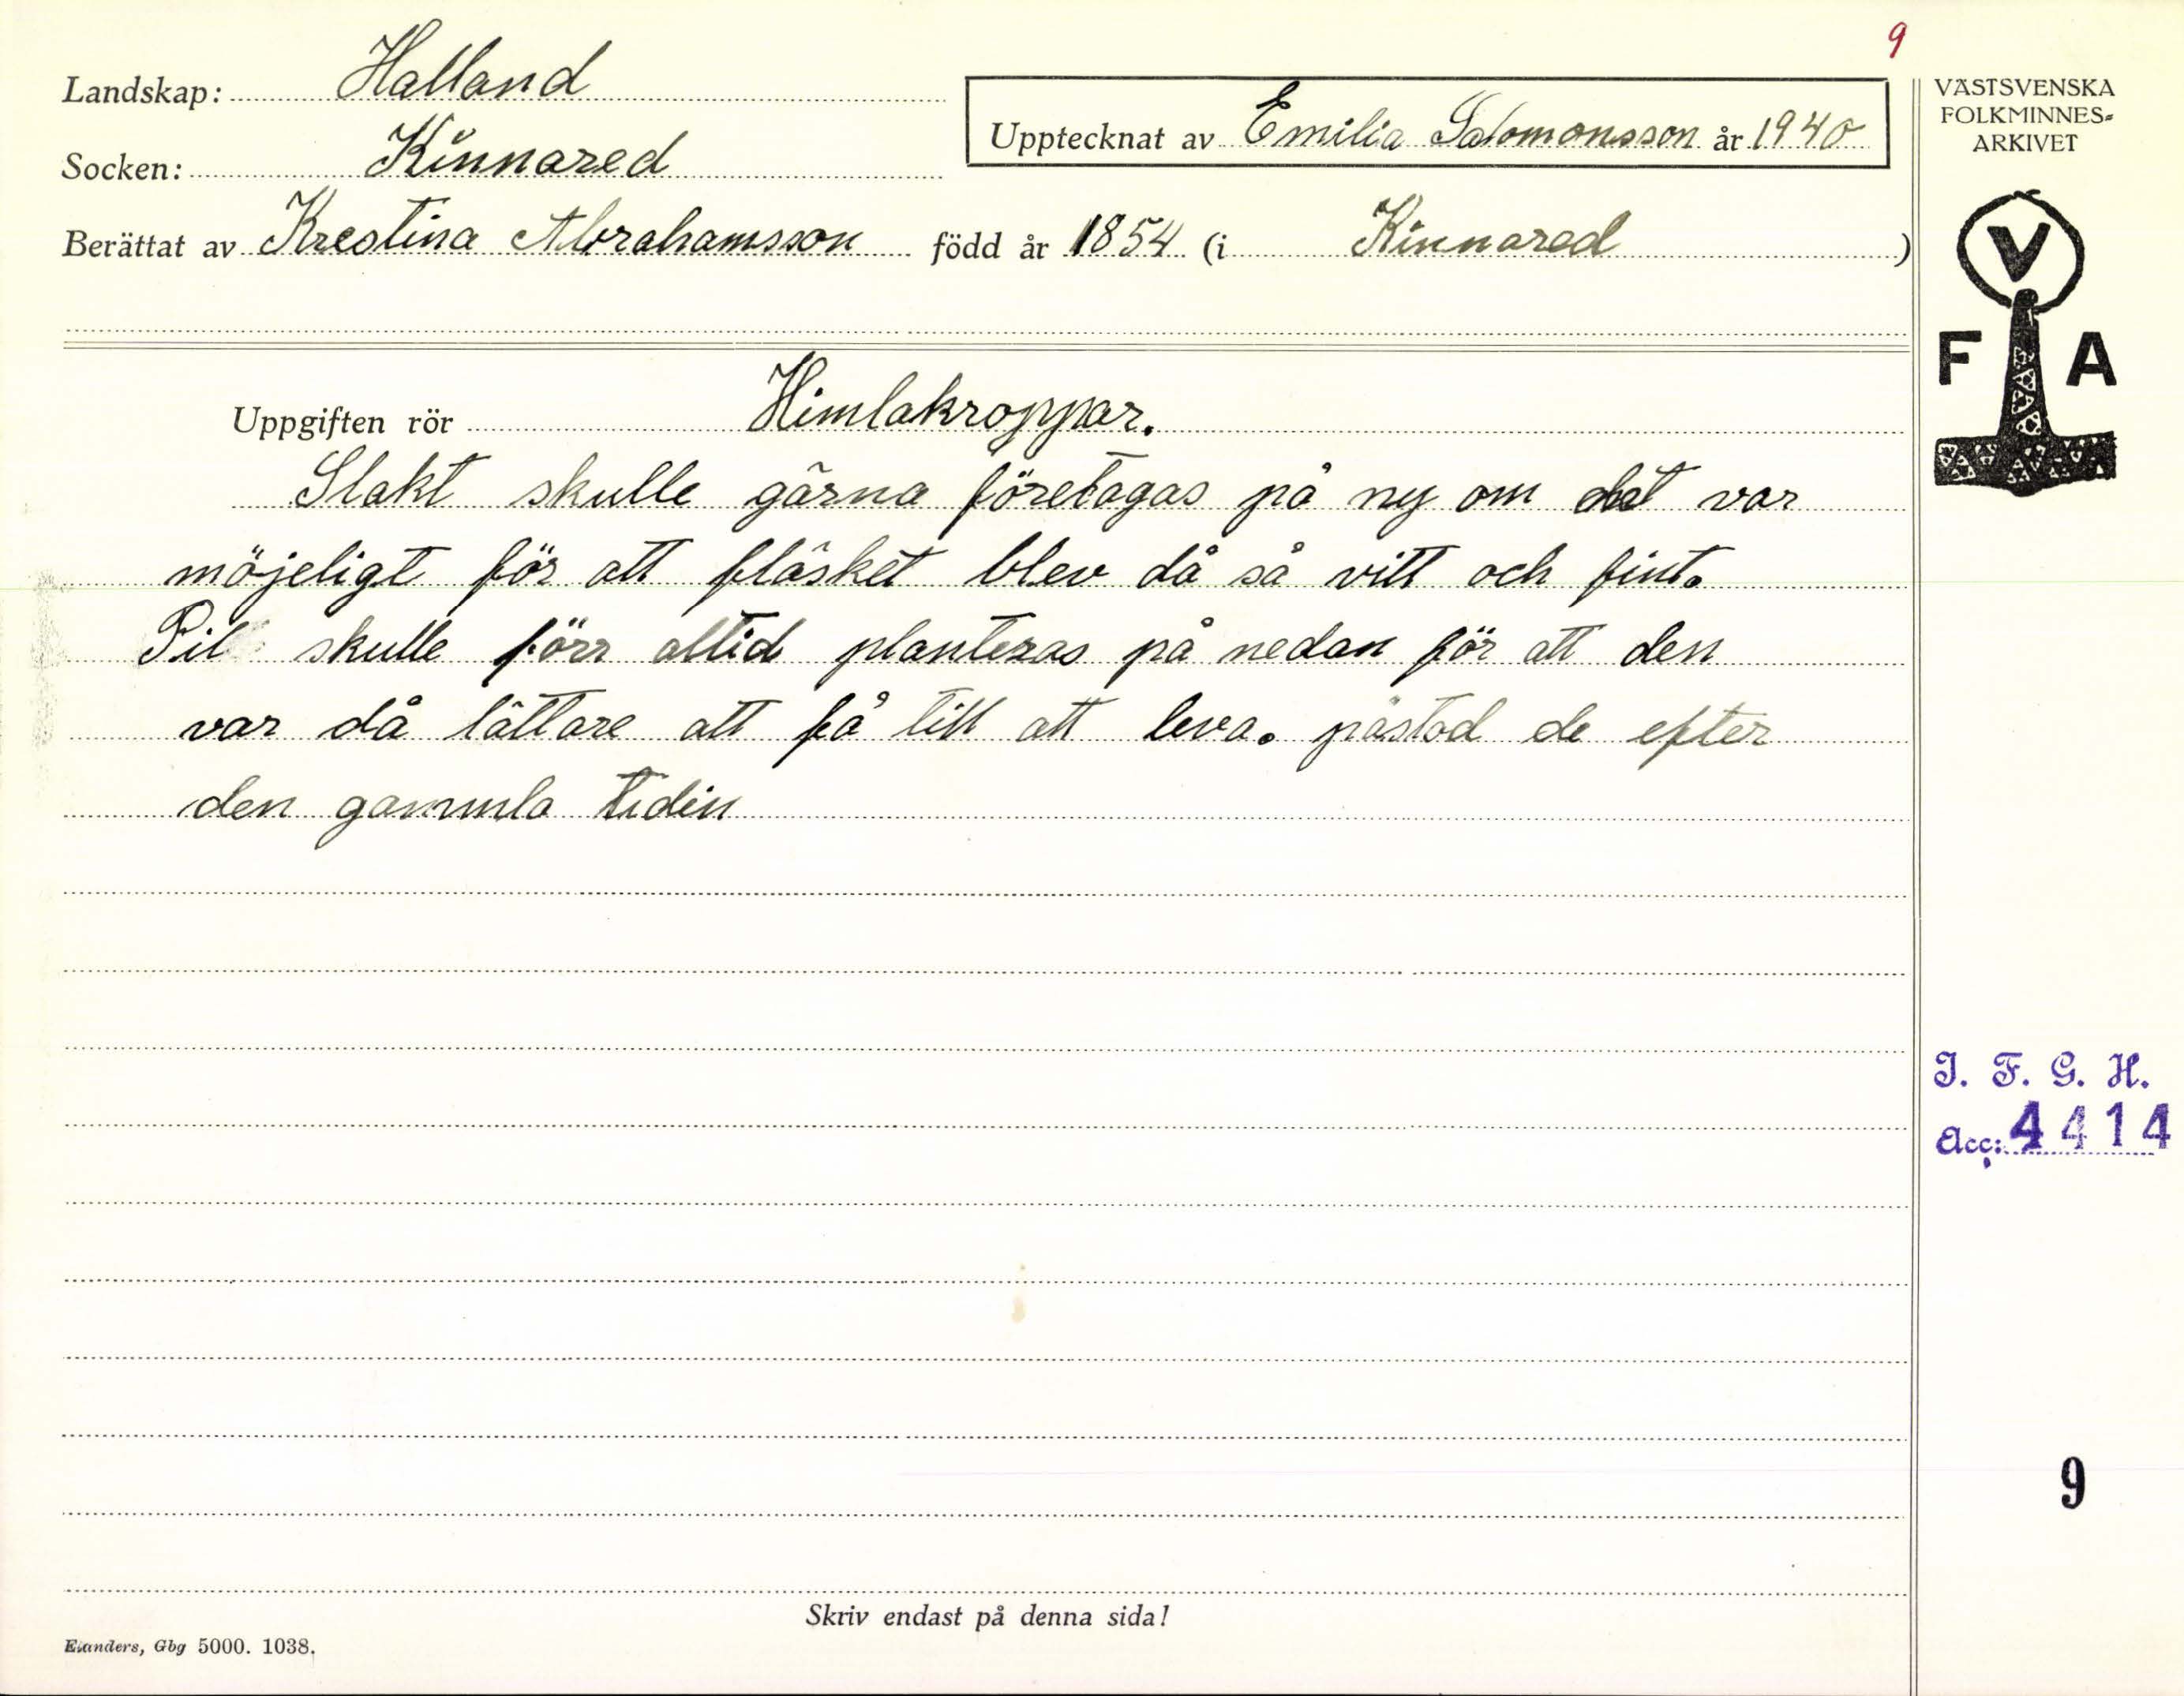 9
Landskap: Halland
Upptecknat av Emilia Salomonsson år 1940
Socken: Kinnared
Berättat av Krestina Abrahamsson född år 1854 (i Kinnared )
Uppgiften rör Himlakroppar.
Slakt skulle gärna företagas på ny om det var
möjeligt för att fläsket blev då så vitt och fint.
Pil skulle förr alltid planteras på nedan för att den
var då lättare att få till att leva. påstod de efter
den gammla tidin
Skriv endast på denna sida!
Elanders, Gbg 5000. 1038.
VÄSTSVENSKA
FOLKMINNES=
ARKIVET
V
F A
I. F. G. H.
Acc: 4414
9